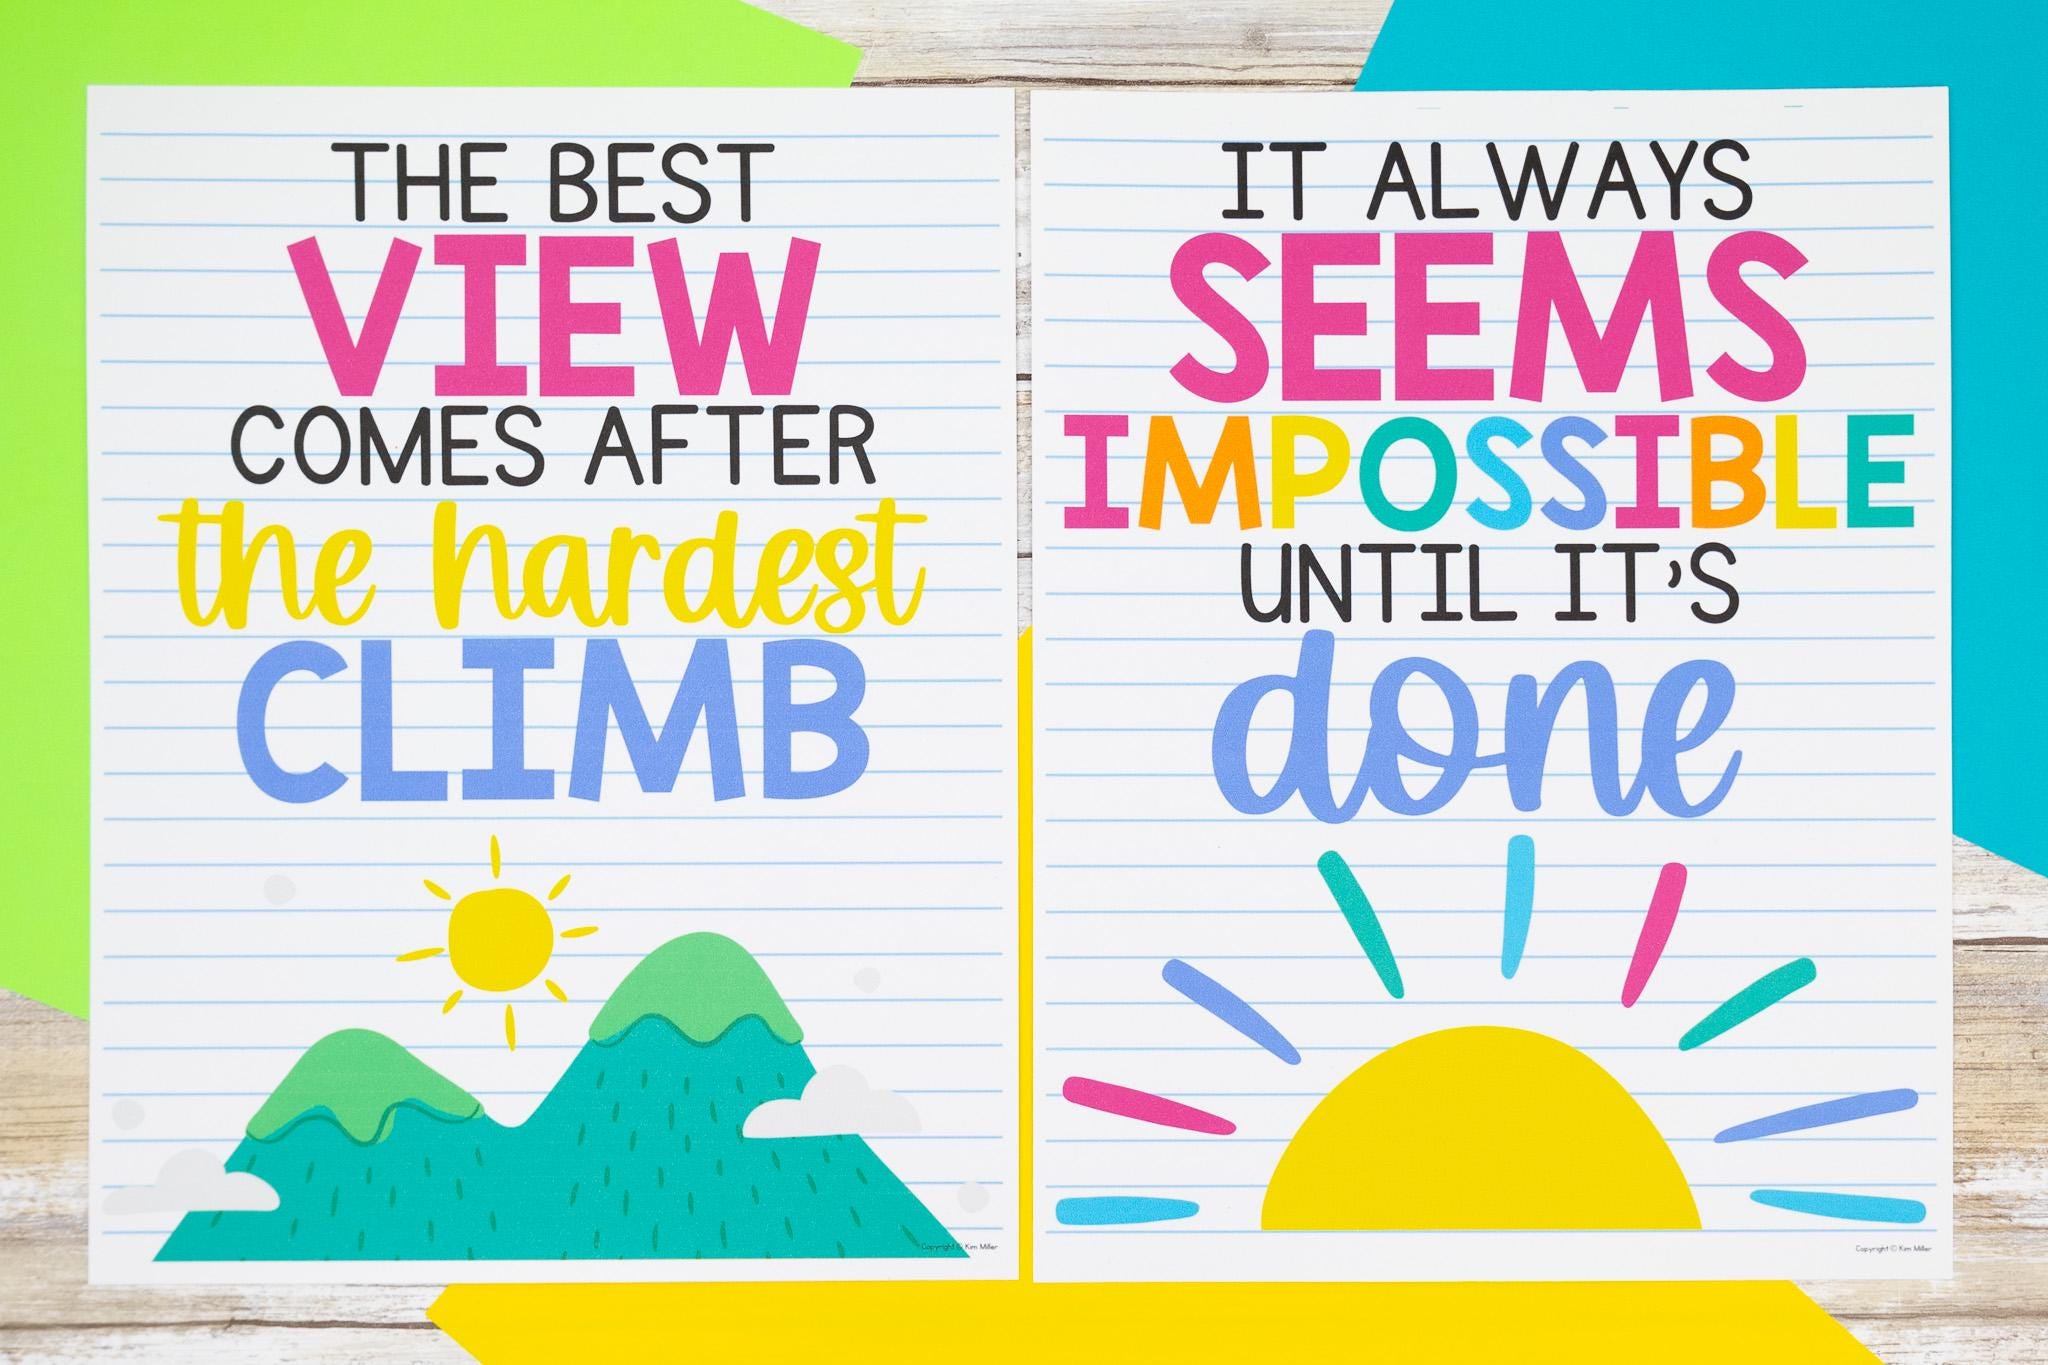 THE BEST
VIEW
COMES AFTER
the hardest
CLIMB
Copyright © Kim Miller
IT ALWAYS
SEEMS
IMPOSSIBLE
UNTIL IT'S
done
Copyright © Kim Miller